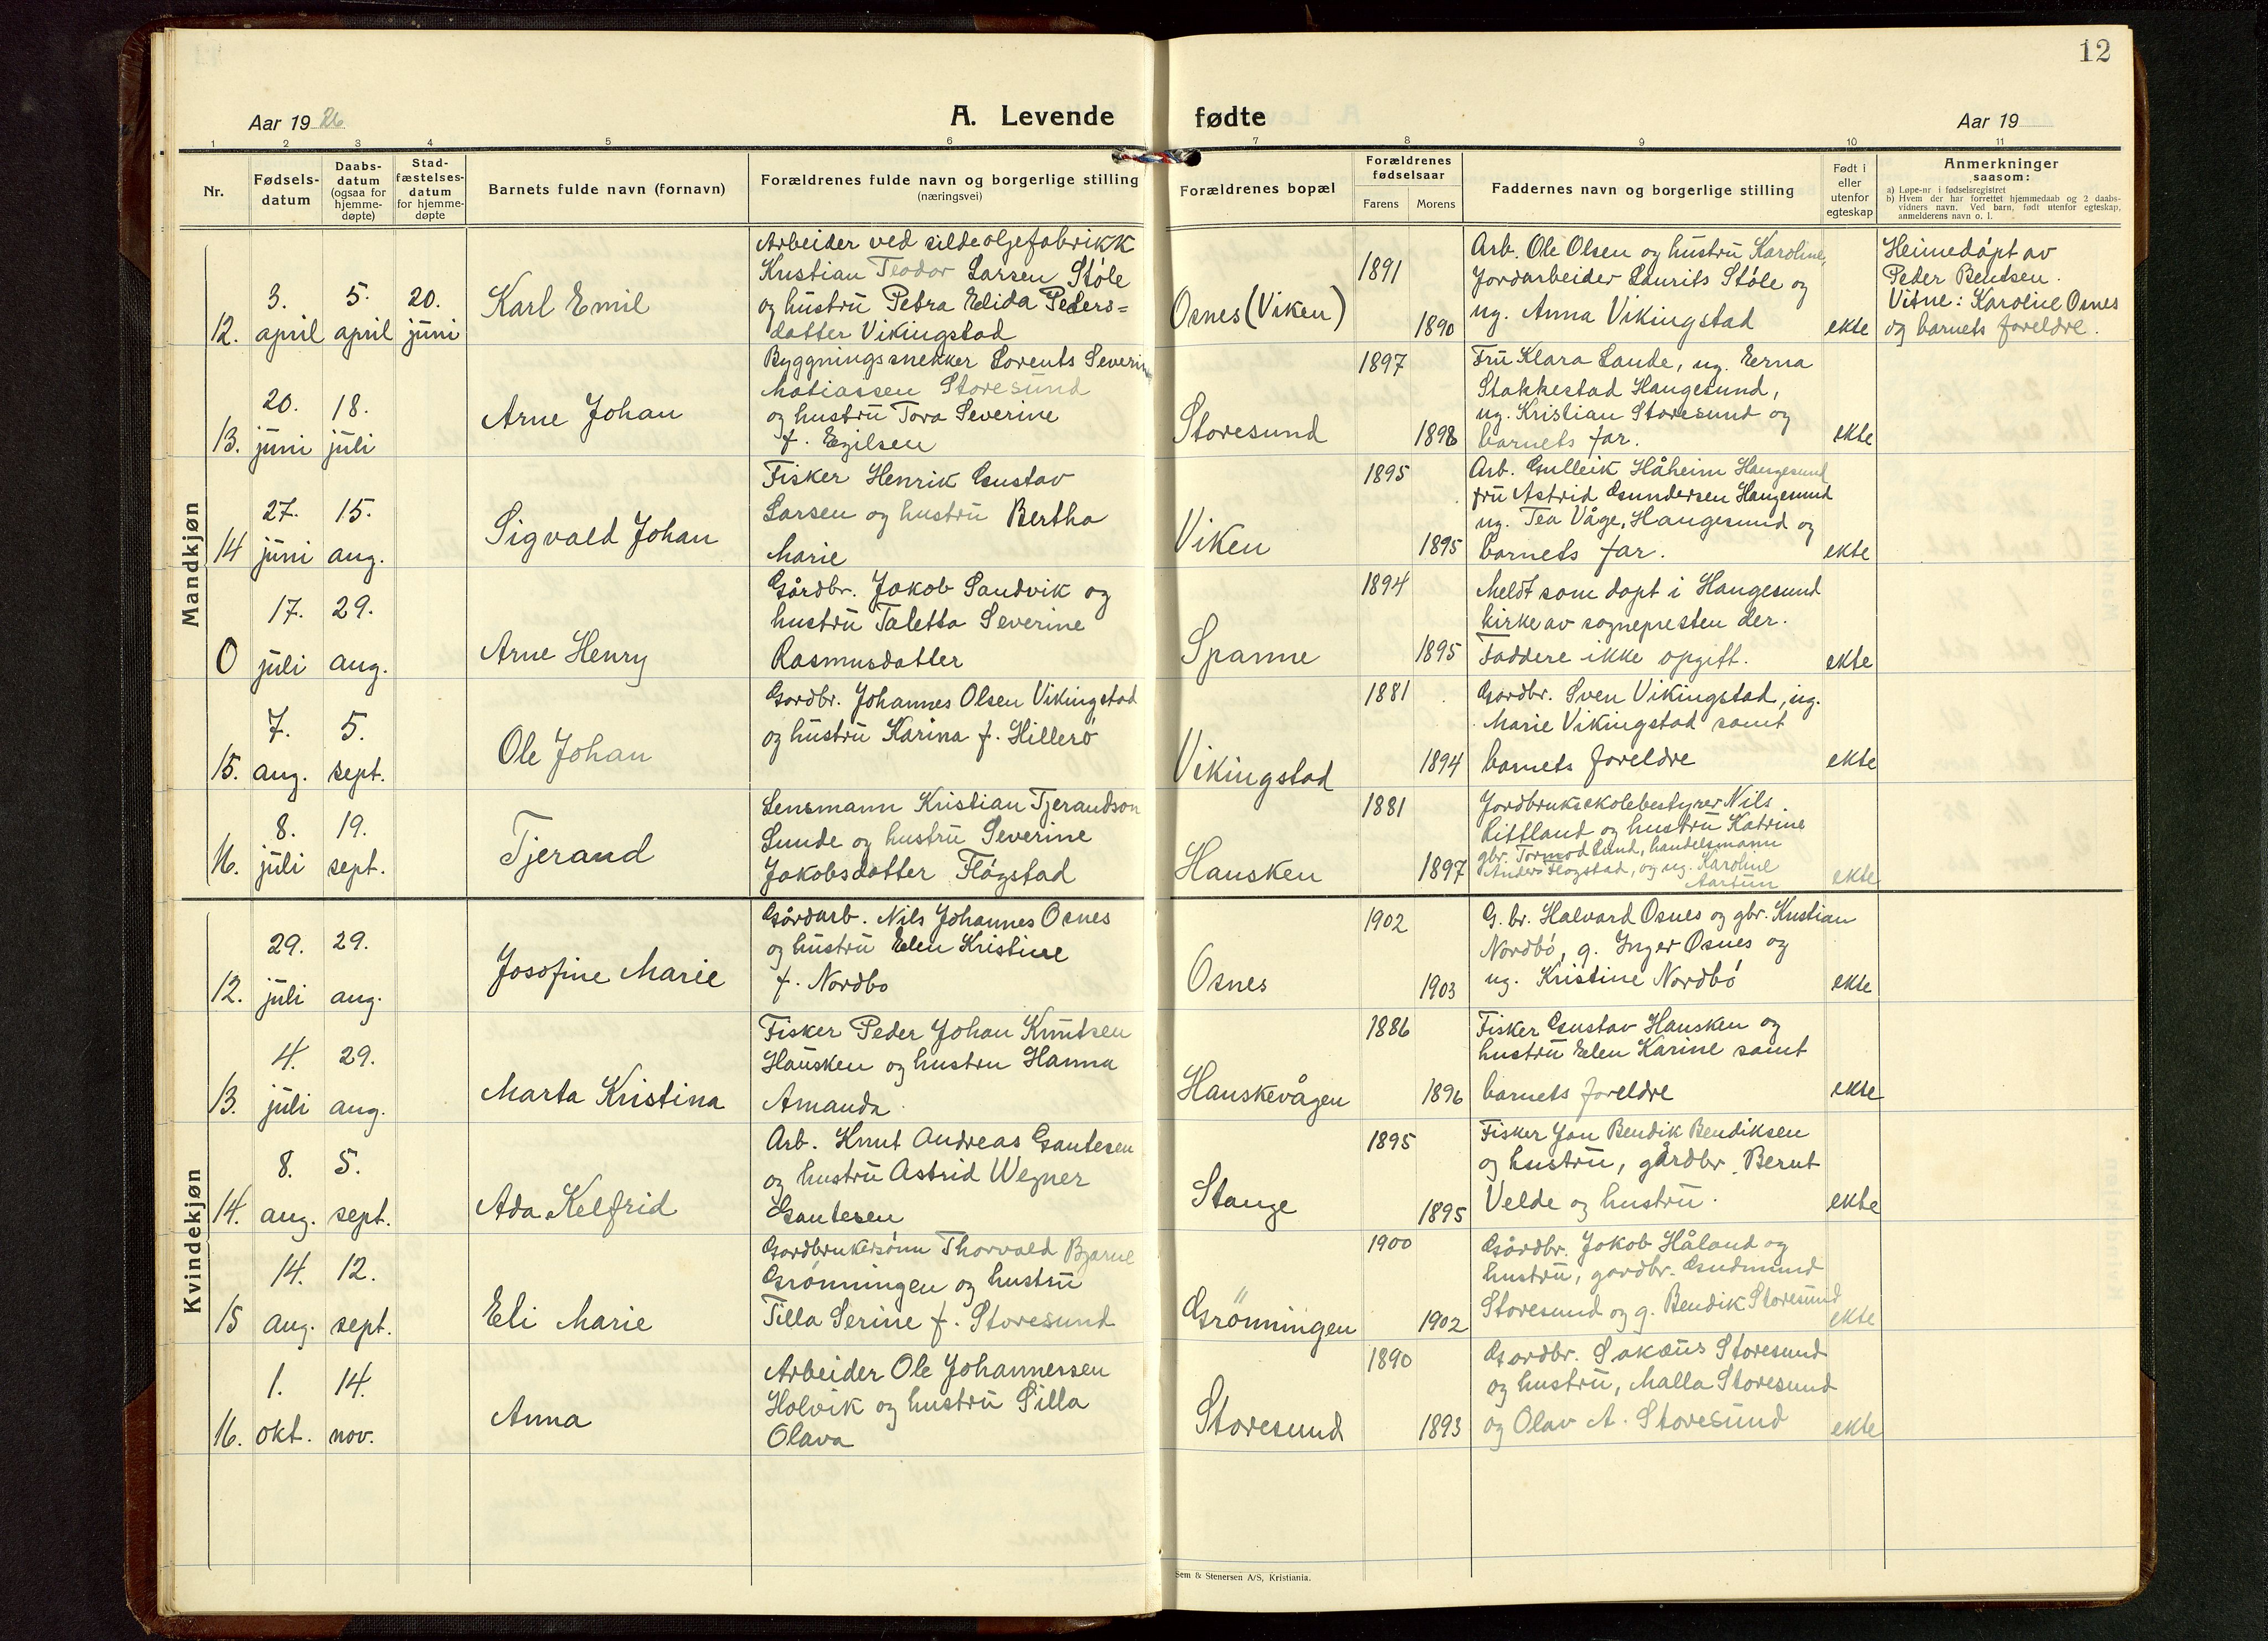 12
Aar 1926
A. Levende
fødte
Aar 19
1 2 3 4 5 6 7 8 9 10 11
Nr.
Fødsels-
datum
Daabs-
datum
(ogsaa for
hjemme-
døpte)
Stad-
fæstelses-
datum
for hjemme-
døpte
Barnets fulde navn (fornavn)
Forældrenes fulde navn og borgerlige stilling
(næringsvei)
Forældrenes bopæl
Forældrenes
fødselsaar
Farens Morens
Faddernes navn og borgerlige stilling
Født i
eller
utenfor
egteskap
Anmerkninger
saasom:
a) Løpe-nr i fødselsregistret
b) Hvem der har forrettet hjemmedaab og 2 daabs-
vidners navn. Ved barn, født utenfor egteskap,
anmelderens navn o. l.
Mandkjøn
12. 3. april 5. april 20. juni
Karl Emil
Arbeider ved sildeoljefabrikk
Kristian Teodor Larsen Støle
og hustru Petra Elida Peders=
datter Vikingstad
Osnes (Viken)
1891 1890
Arb. Ole Olsen og hustru Karoline,
Jordarbeider Laurits Støle og
ug. Anna Vikingstad
ekte
Heimedøpt av
Peder Bendsen.
Vitne: Karoline Osnes
og barnets foreldre.
13. 20. juni 18. juli
Arne Johan
Byggningssnekker Lorents Severin
Matiassen Storesund
og hustru Tora Severine
f. Egilsen
Storesund
1897 1898
Fru Klara Lande, ug. Erna
Stakkestad Haugesund,
ug. Kristian Storesund og
barnets far.
ekte
14 27. juni 15. aug.
Sigvald Johan
Fisker Henrik Gustav
Larsen og hustru Bertha
Marie
Viken
1895 1895
Arb. Gulleik Håheim Haugesund
fru Astrid Gundersen Haugesund
ug. Tea Våge, Haugesund og
barnets far.
ekte
0 17. juli 29. aug.
Arne Henry
Gårdbr. Jakob Sandvik og
hustru Taletta Severine
Rasmusdatter
Spanne
1894 1895
Meldt som døpt i Haugesund
kirke av sognepresten der.
Faddere ikke opgitt.
ekte
15. 7. aug. 5. sept.
Ole Johan
Gardbr. Johannes Olsen Vikingstad
og hustru Karina f. Hillerø
Vikingstad
1881 1894
Gardbr. Sven Vikingstad, ug.
Marie Vikingstad samt
barnets foreldre
ekte
16. 8. juli 19. sept.
Tjerand
Lensmann Kristian Tjerandson
Lunde og hustru Severine
Jakobsdatter Fløgstad
Hausken
1881 1897
Jordbruksskolebestyrer Nils
Rittland og hustru Katrine
gbr. Tormod Lund, handelsmann
Anders Fløgstad, og ug. Karoline
Aartun
ekte
Kvindekjøn
12. 29. juli 29. aug.
Josofine Marie
Gårdarb. Nils Johannes Osnes
og hustru Elen Kristine
f. Nordbø
Osnes
1902 1903
G. br. Halvard Osnes og gbr. Kristian
Nordbø, g. Inger Osnes og
ug. Kristine Nordbø
ekte
13. 4. juli 29. aug.
Marta Kristina
Fisker Peder Johan Knutsen
Hausken og hustru Hanna
Amanda
Hauskevågen
1886 1896
Fisker Gustav Hausken og
hustru Elen Karine samt
barnets foreldre
ekte
14. 8. aug. 5. sept.
Ada Kelfrid
Arb. Knut Andreas Gautesen
og hustru Astrid Wegner
Gautesen
Stange
1895 1895
Fisker Jan Bendik Bendiksen
og hustru, gårdbr. Bernt
Velde og hustru.
ekte
15 14. aug. 12. sept.
Eli Marie
Gardbrukersønn Thorvald Bjarne
Grønningen og hustru
Tilla Serine f. Storesund
Grönningen
1900 1902
Gårdbr. Jakob Håland og
hustru, gardbr. Gudmund
Storesund og g. Bendik Storesund
ekte
16. 1. okt. 14. nov.
Anna
Arbeider Ole Johannessen
Holvik og hustru Silla
Olava
Storesund
1890 1893
Gardbr. Sakæus Storesund
og hustru, Malla Storesund
og Olav A. Storesund
ekte
Sem & Stenersen A/S, Kristiania.